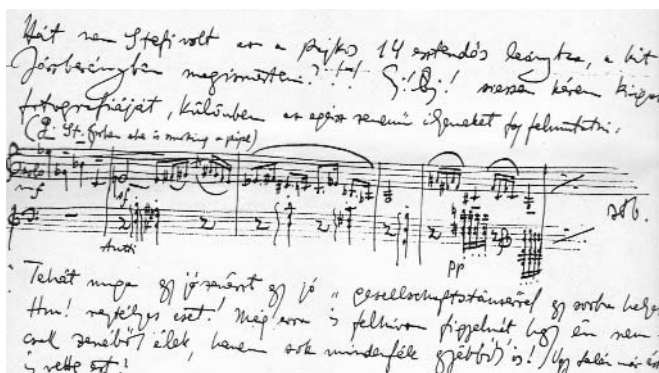 Hát nem Stefi volt az a pajkos 14 esztendős leányka, a kit
Jászberényben megismertem?
küldje kérem
fotografiáját, különben az egész zenemű ilyeneket fog felmutatni:
(St. when she is smoking a pipe)
Solo
mf
stb.
pp
Tehát maga egy jó zenészt egy jó "gesellschaftstänzerrel" egy sorba helyez
Hm! rejtélyes eset! Még arra is felhívom figyelmét hogy én nem
csak zenéből élek, hanem sok mindenféle egyébből is!
is vette ezt!